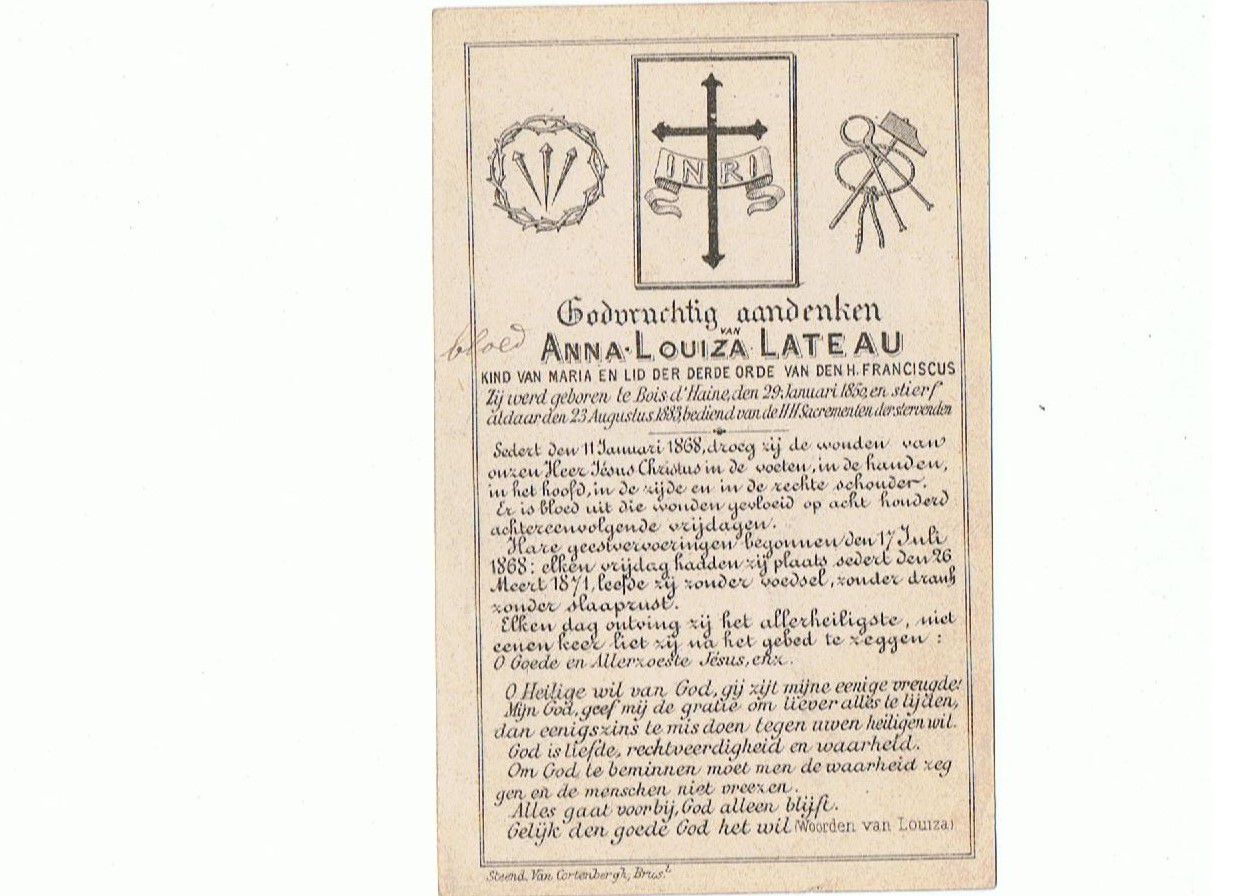 INRI
Godvruchtig aandenken
VAN
bloed
ANNA-LOUIZA LATEAU
KIND VAN MARIA EN LID DER DERDE ORDE VAN DEN H. FRANCISCUS
Zij werd geboren te Bois-d'Haine, den 29 Januari 1850, en stierf
aldaar den 23 Augustus 1883, bediend van de HH Sacrementen der stervenden
Sedert den 11 Januari 1868, droeg zij de wonden van
onzen Heer Jésus Christus in de voeten, in de handen,
in het hoofd, in de zijde en in de rechte schouder.
Er is bloed uit die wonden gevloeid op acht honderd
achtereenvolgende vrijdagen.
Hare geestvervoeringen begonnen den 17 Juli
1868: elken vrijdag hadden zij plaats sedert den 26
Meert 1871, leefde zij zonder voedsel, zonder drank
zonder slaaprust.
Elken dag ontving zij het allerheiligste, niet
eenen keer liet zij na het gebed te zeggen:
O Goede en Allerzoeste Jésus, enz.
O Heilige wil van God, gij zijt mijne eenige vreugde!
Mijn God, geef mij de gratie om liever alles te lijden,
dan eenigszins te misdoen tegen uwen heiligen wil.
God is liefde, rechtveerdigheid en waarheid.
Om God te beminnen moet men de waarheid zeg
gen en de menschen niet vreezen.
Alles gaat voorbij, God alleen blijft.
Gelijk den goede God het wil (Woorden van Louiza)
Steend. Van Cortenbergh, Brus.l